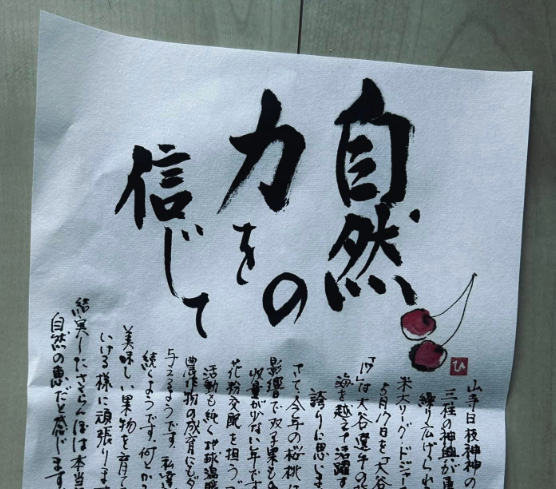 自然の
力を
信じて
ひ
山王日枝神社の
三社の神輿が
繰り広げられ
米大リーグ・ドジャー
5月17日を「大谷
「17」は大谷選手の
海を越えて活躍す
誇りに思いま
さて今年の桜桃は
影響で双子果もの
収量が少ない年です
花粉交配を担う
活動も鈍く地球温暖
農作物の成育にもダ
与えるようです。私達
続くようです。何とか
美味しい果物を育て
いける様に頑張ります
結実したさくらんぼは本当
自然の恵だと感じます